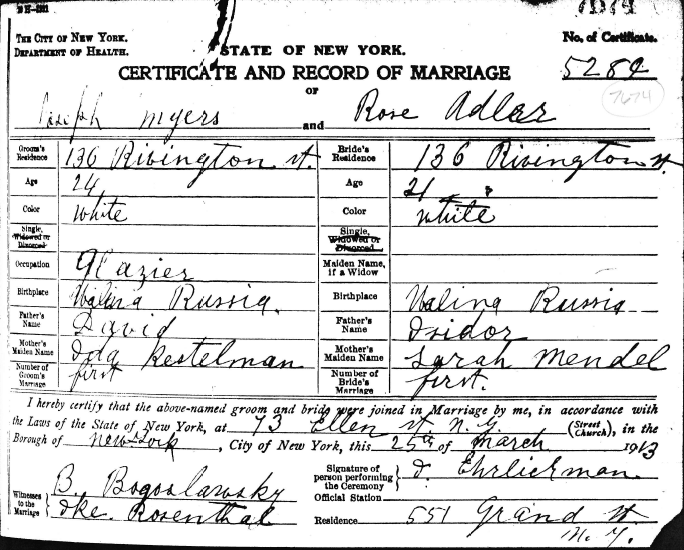 THE CITY OF NEW YORK.
DEPARTMENT OF HEALTH.
STATE OF NEW YORK.
No. of Certificate.
CERTIFICATE AND RECORD OF MARRIAGE
5284
7674
OF
Joseph Myers and Rose Adler
Groom's Residence 136 Rivington st. Bride's Residence 136 Rivington st.
Age 24 Age 21
Color White Color White
Single, Widowed or Divorced Single, Widowed or Divorced
Occupation Glazier Maiden Name, if a Widow
Birthplace Russia. Birthplace Russia
Father's Name David Father's Name Isidor
Mother's Maiden Name Ida Kestelman Mother's Maiden Name Sarah Mendel
Number of Groom's Marriage first Number of Bride's Marriage first.
I hereby certify that the above-named groom and bride were joined in Marriage by me, in accordance with
the Laws of the State of New York, at 73 Ellen st. N. Y. (Street Church), in the
Borough of New York, City of New York, this 25th of March 1913
Witnesses to the Marriage
B. Bogoslawsky
Ike. Rosenthal
Signature of person performing the Ceremony
J. Ehrlichman.
Official Station
Residence 551 Grand st.
N. Y.